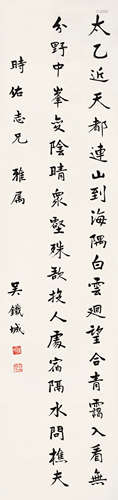 太乙近天都連山到海隅白雲迴望合青靄入看無
分野中峯變陰晴衆壑殊欲投人處宿隔水問樵夫
時佑志兄 雅属
吳鐵城